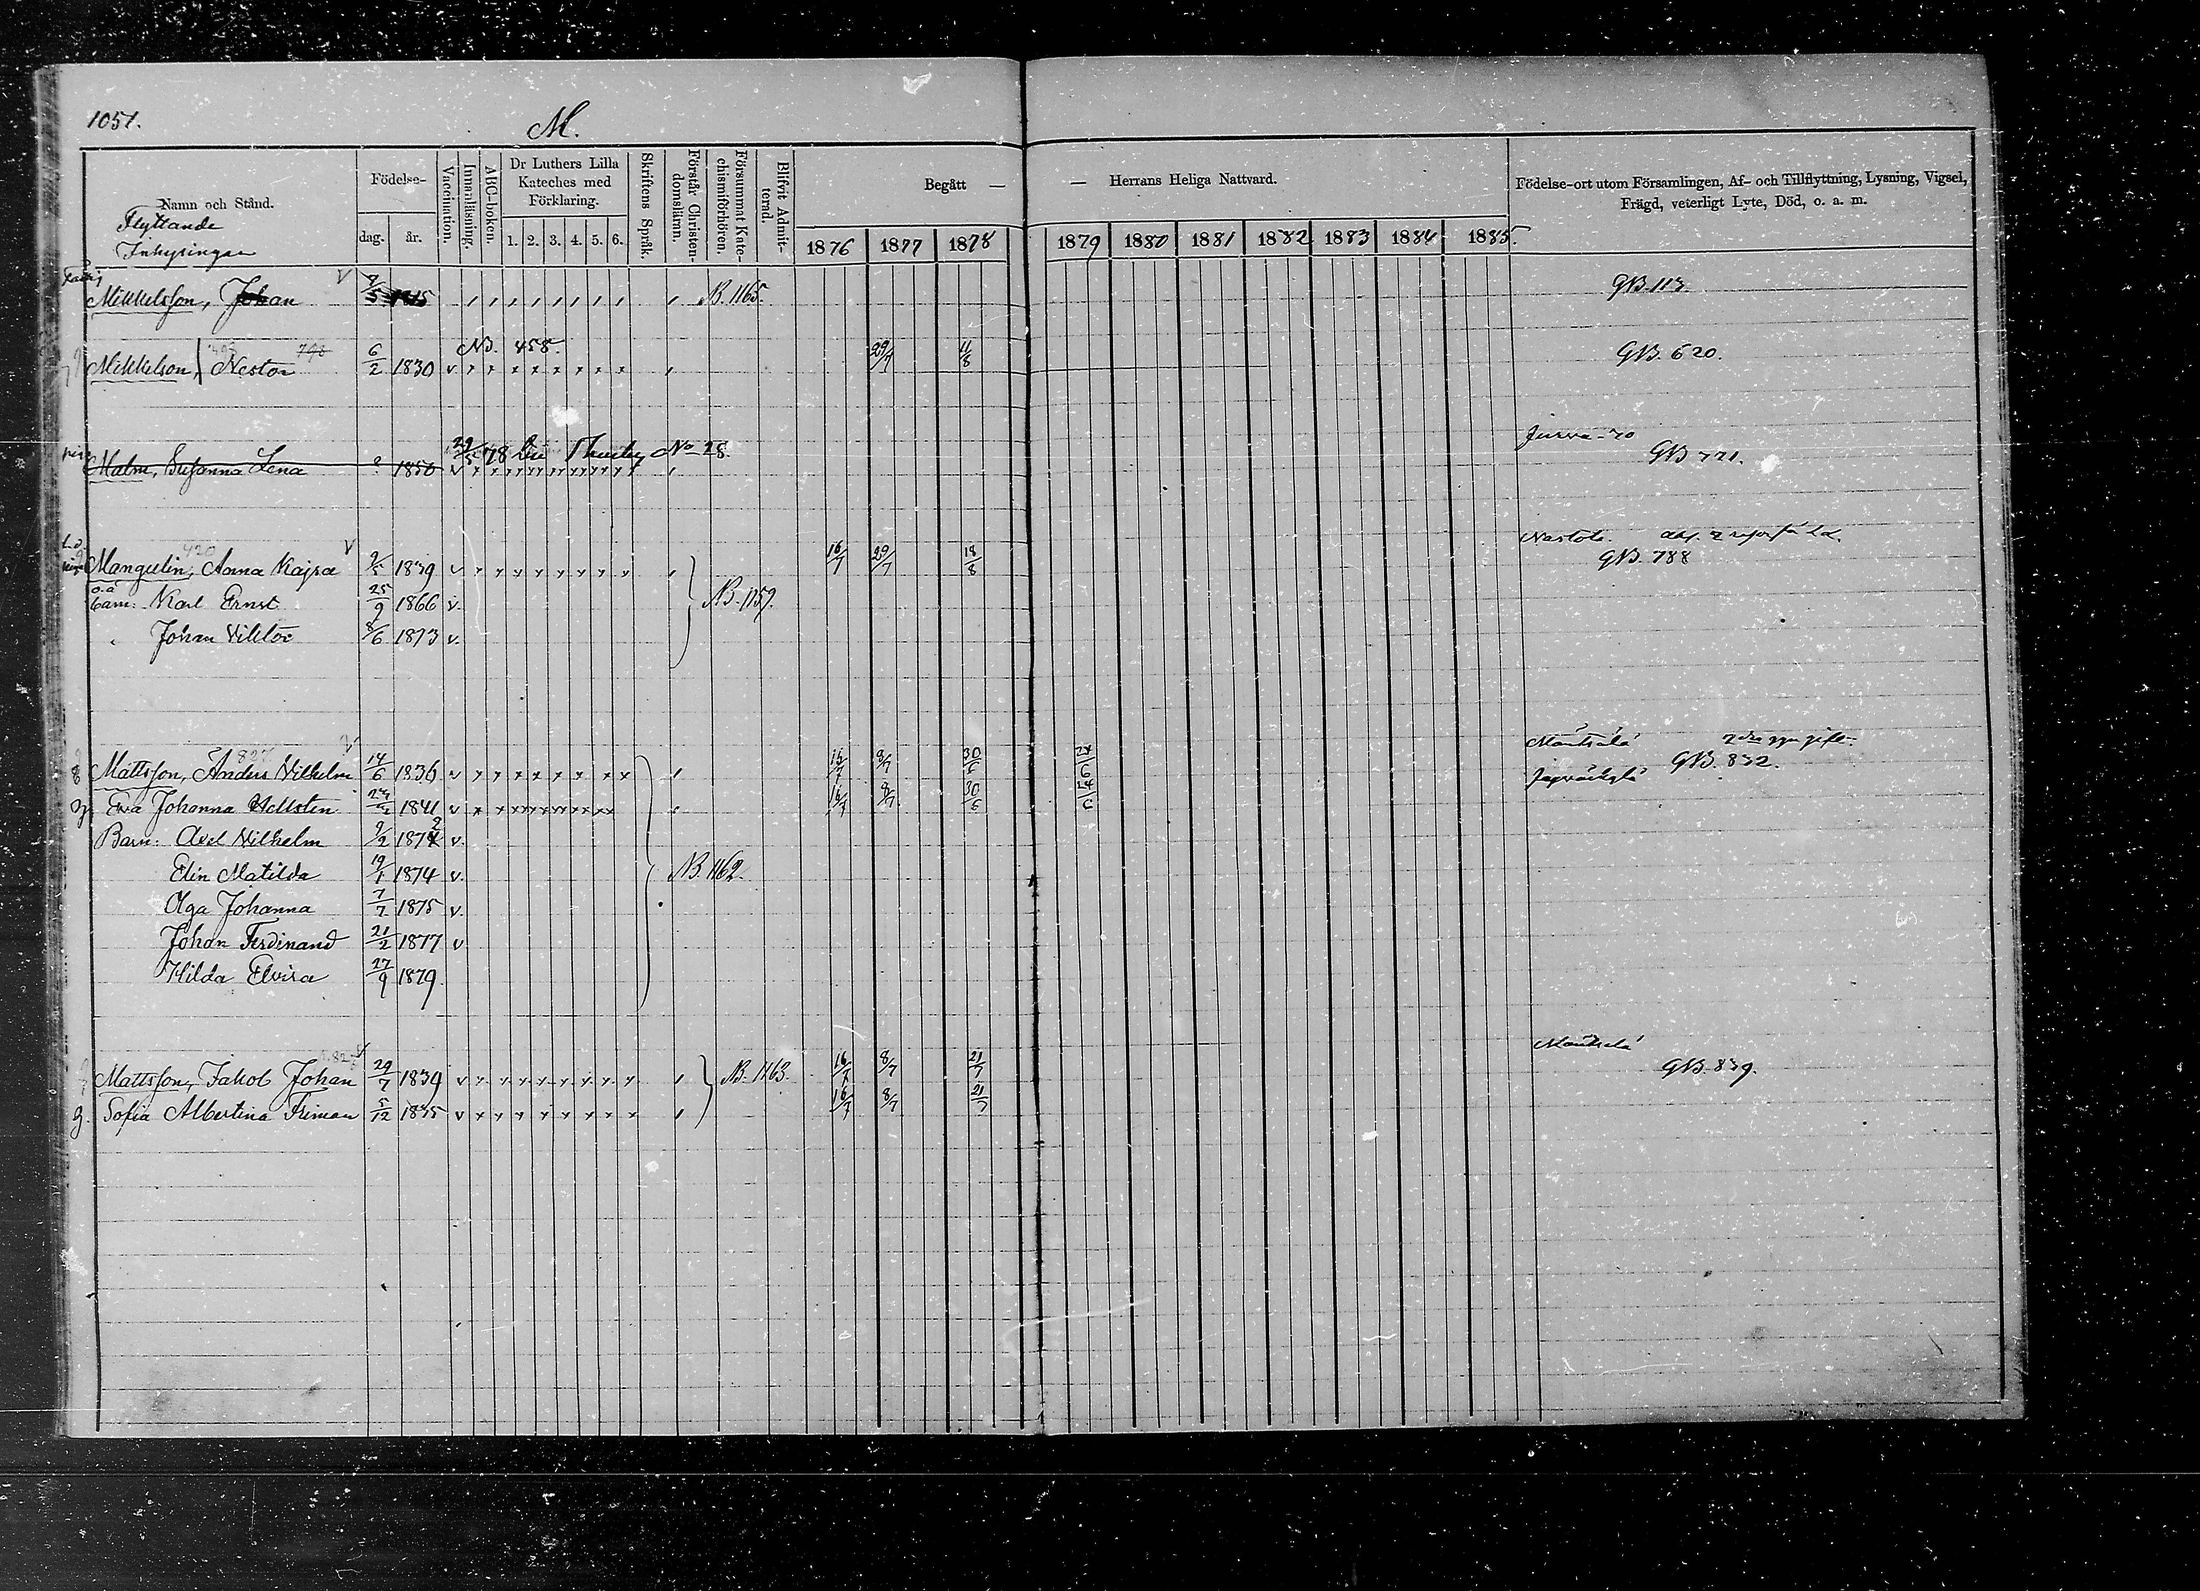 1051.
M.
Namn och Stånd.
Flyttande
Inhysingar
Födelse-
dag. år.
Vaccination.
Innanläsning.
ABC-boken.
Dr Luthers Lilla
Kateches med
Förklaring.
1. 2. 3. 4. 5. 6.
Skriftens Språk.
Förstår Christen-
domsläran.
Försummat Kate-
chismiförhören.
Blifvit Admit-
terad.
Begått — — Herrans Heliga Nattvard.
1876 1877 1878 1879 1880 1881 1882 1883 1884 1885.
Födelse-ort utom Församlingen, Af- och Tillflyttning, Lysning, Vigsel,
Frägd, veterligt Lyte, Död, o. a. m.
Mikkelsson, Johan NB. 1165. GB. 113.
NB. 458.
Mikkelson, Nestor 6/2 1830 v 29/7 11/8 GB. 620.
29/5 78 No 28.
Malm, Susanna Lena 1850 v GB 721.
Mangelin, Anna Kajsa 1839 v 16/7 29/7 18/8 GB. 788
o.ä
barn: Karl Ernst 25/9 1866 v. NB. 1159.
Johan Viktor 8/6 1873 v.
Mäntsälä
Mattsson, Anders Vilhelm 14/6 1836 v 8/7 30/6 24/6 GB. 832.
g. Eva Johanna Hellsten 1841 v 16/7 8/7 30/6 24/6
Barn: Axel Vilhelm 1872 v.
Elin Matilda 19/1 1874 v. NB 1162.
Olga Johanna 7/7 1875 v.
Johan Ferdinand 21/2 1877 v
Hilda Elvira 27/9 1879.
Mäntsälä
Mattsson, Jakob Johan 29/7 1839 v NB. 1163. 16/7 8/7 21/7 GB. 839.
g. Sofia Albertina Friman 5/12 1835 v 16/7 8/7 21/7